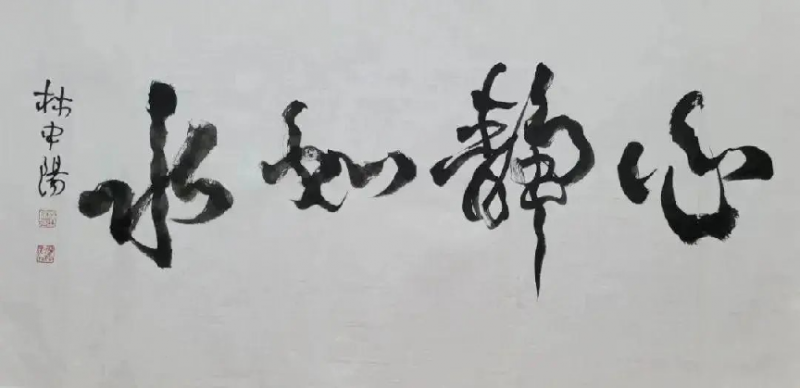 心静如水
林中阳